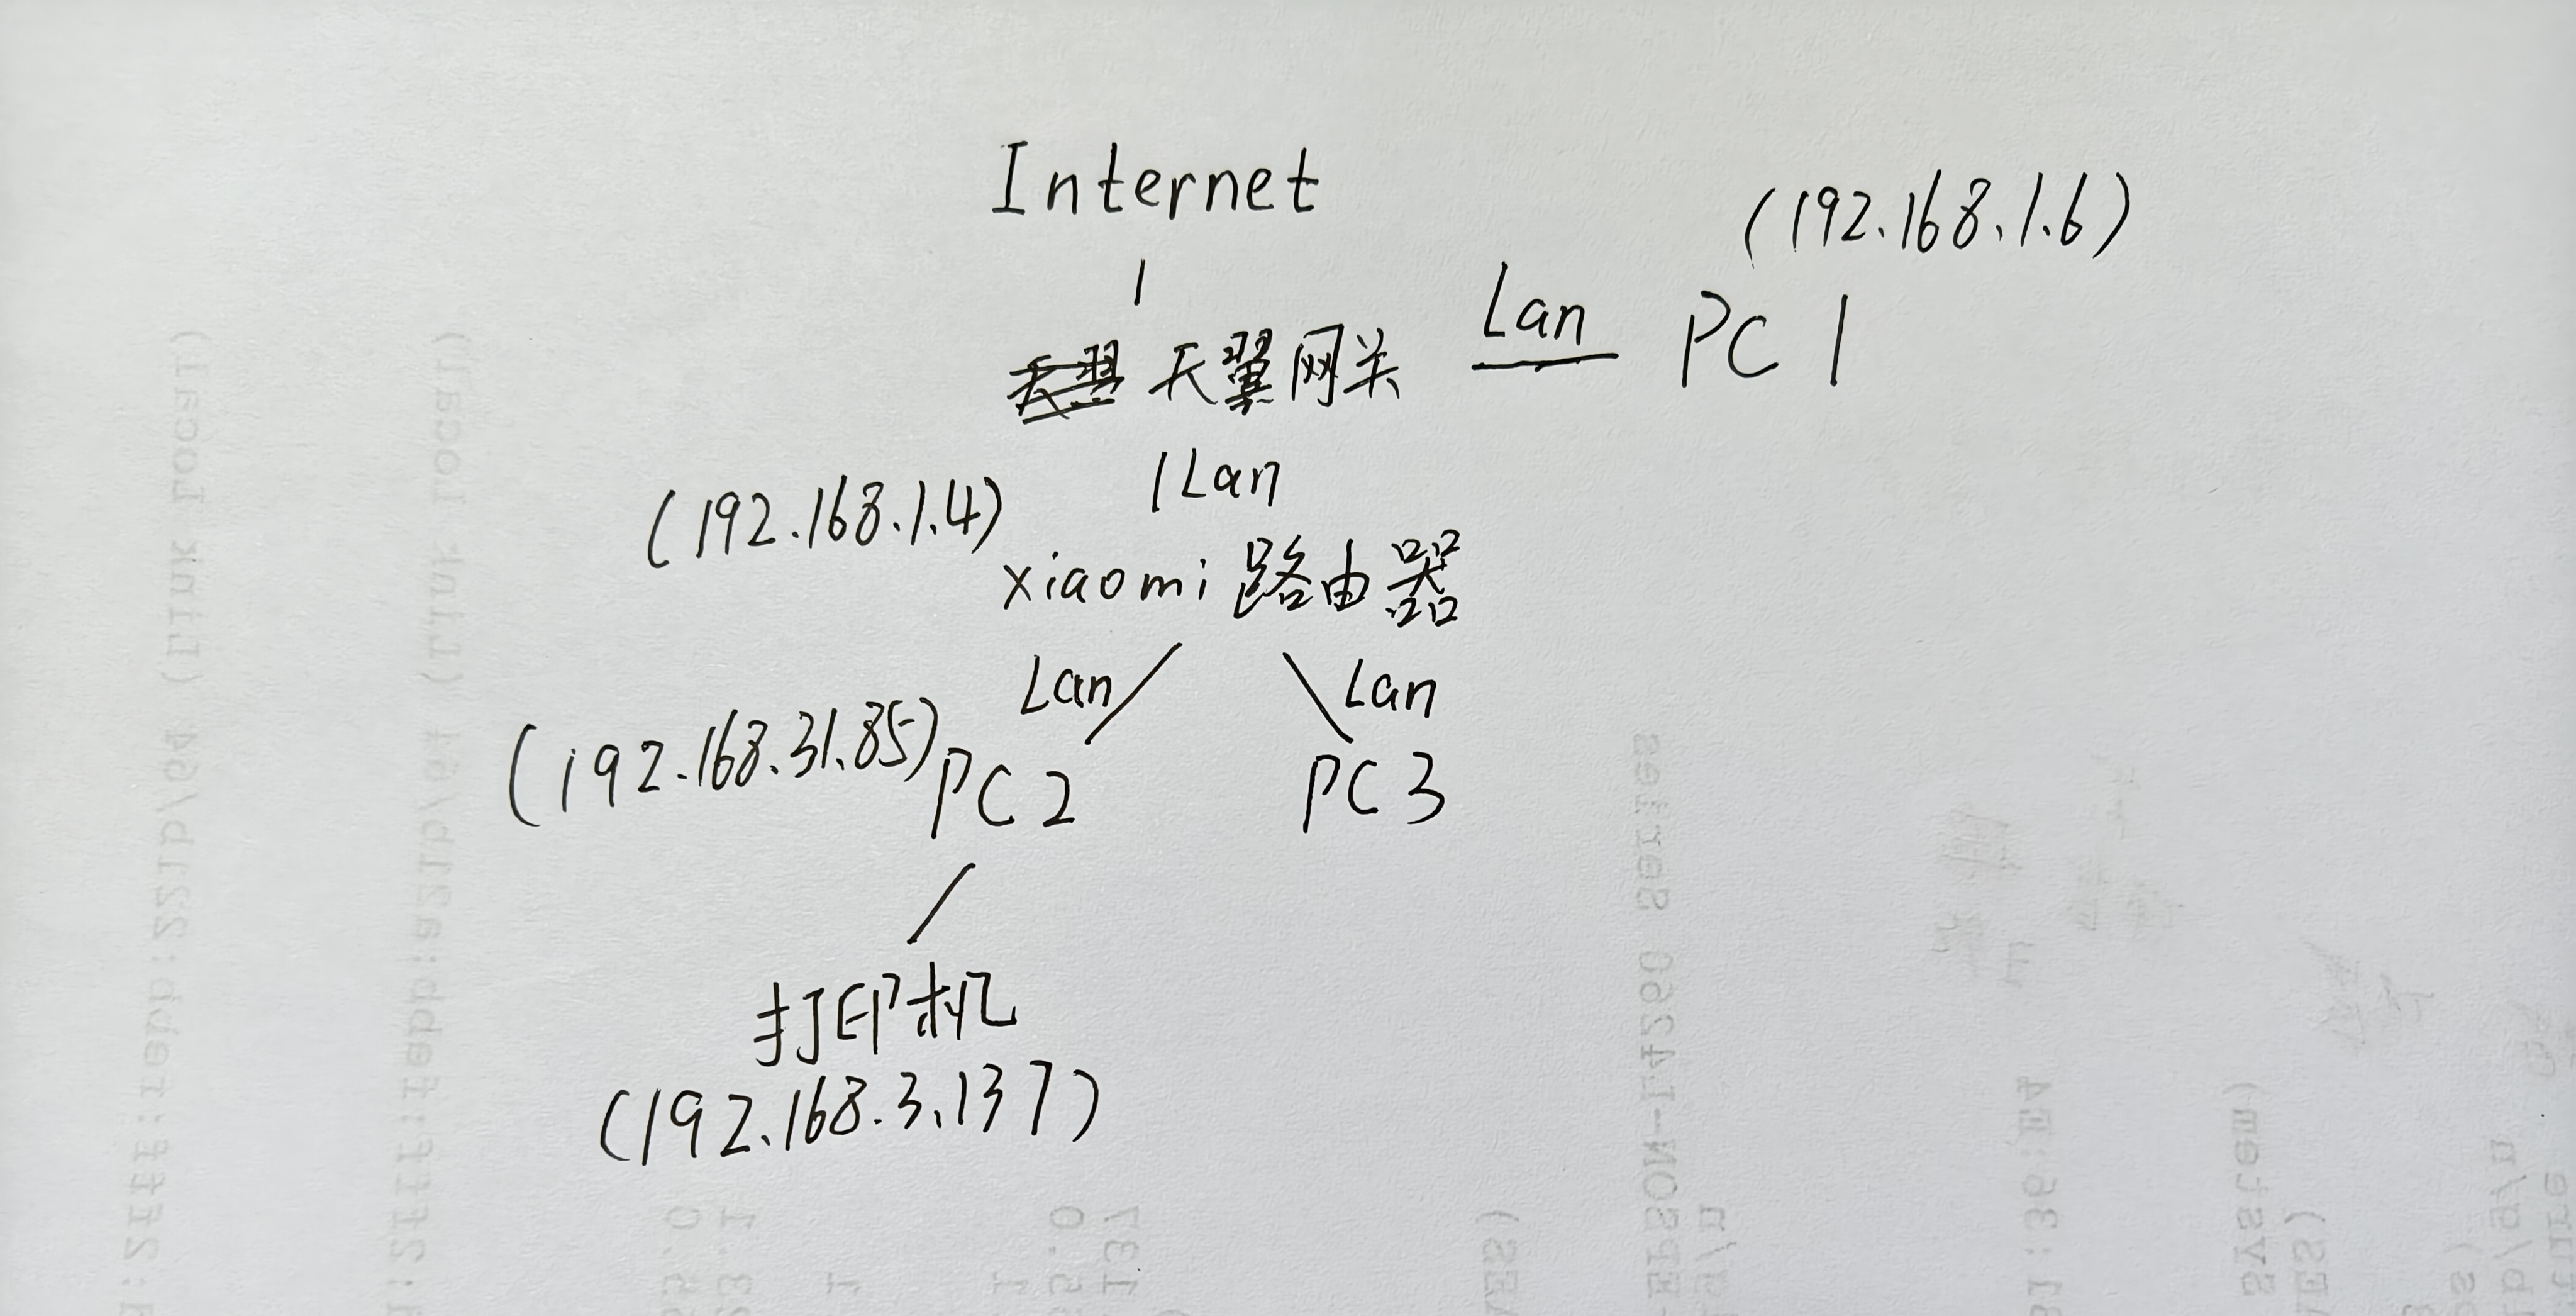 Internet
(192.168.1.6)
天翼网关 Lan PC 1
Lan
(192.168.1.4)
xiaomi 路由器
Lan Lan
(192.168.31.85) PC 2 PC 3
打印机
(192.168.3.137)